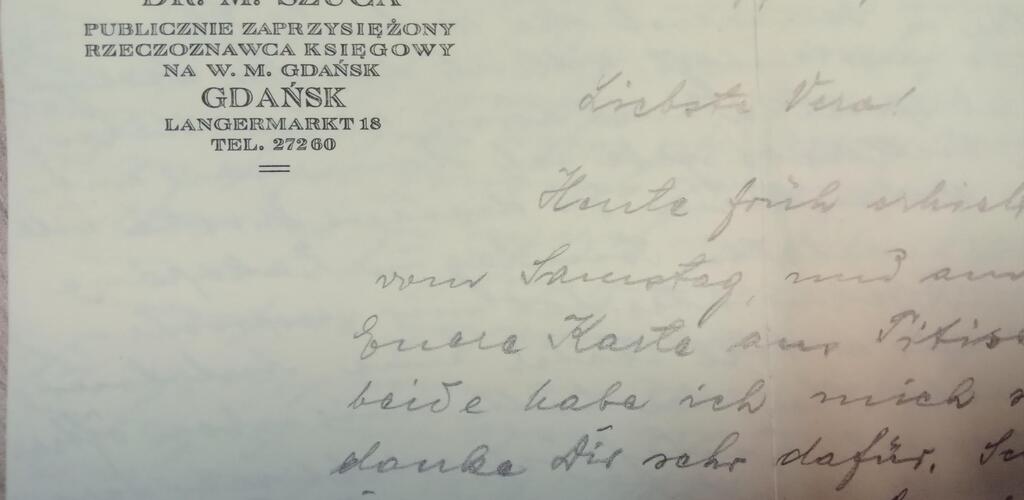 DR. M. SZUCA
PUBLICZNIE ZAPRZYSIĘŻONY
RZECZOZNAWCA KSIĘGOWY
NA W. M. GDAŃSK
GDAŃSK
LANGERMARKT 18
TEL. 27260
Liebste Vera!
Heute früh erhielt
vom Samstag, und
Euere Karte aus Titise
beide habe ich mich
danke Dir sehr dafür.